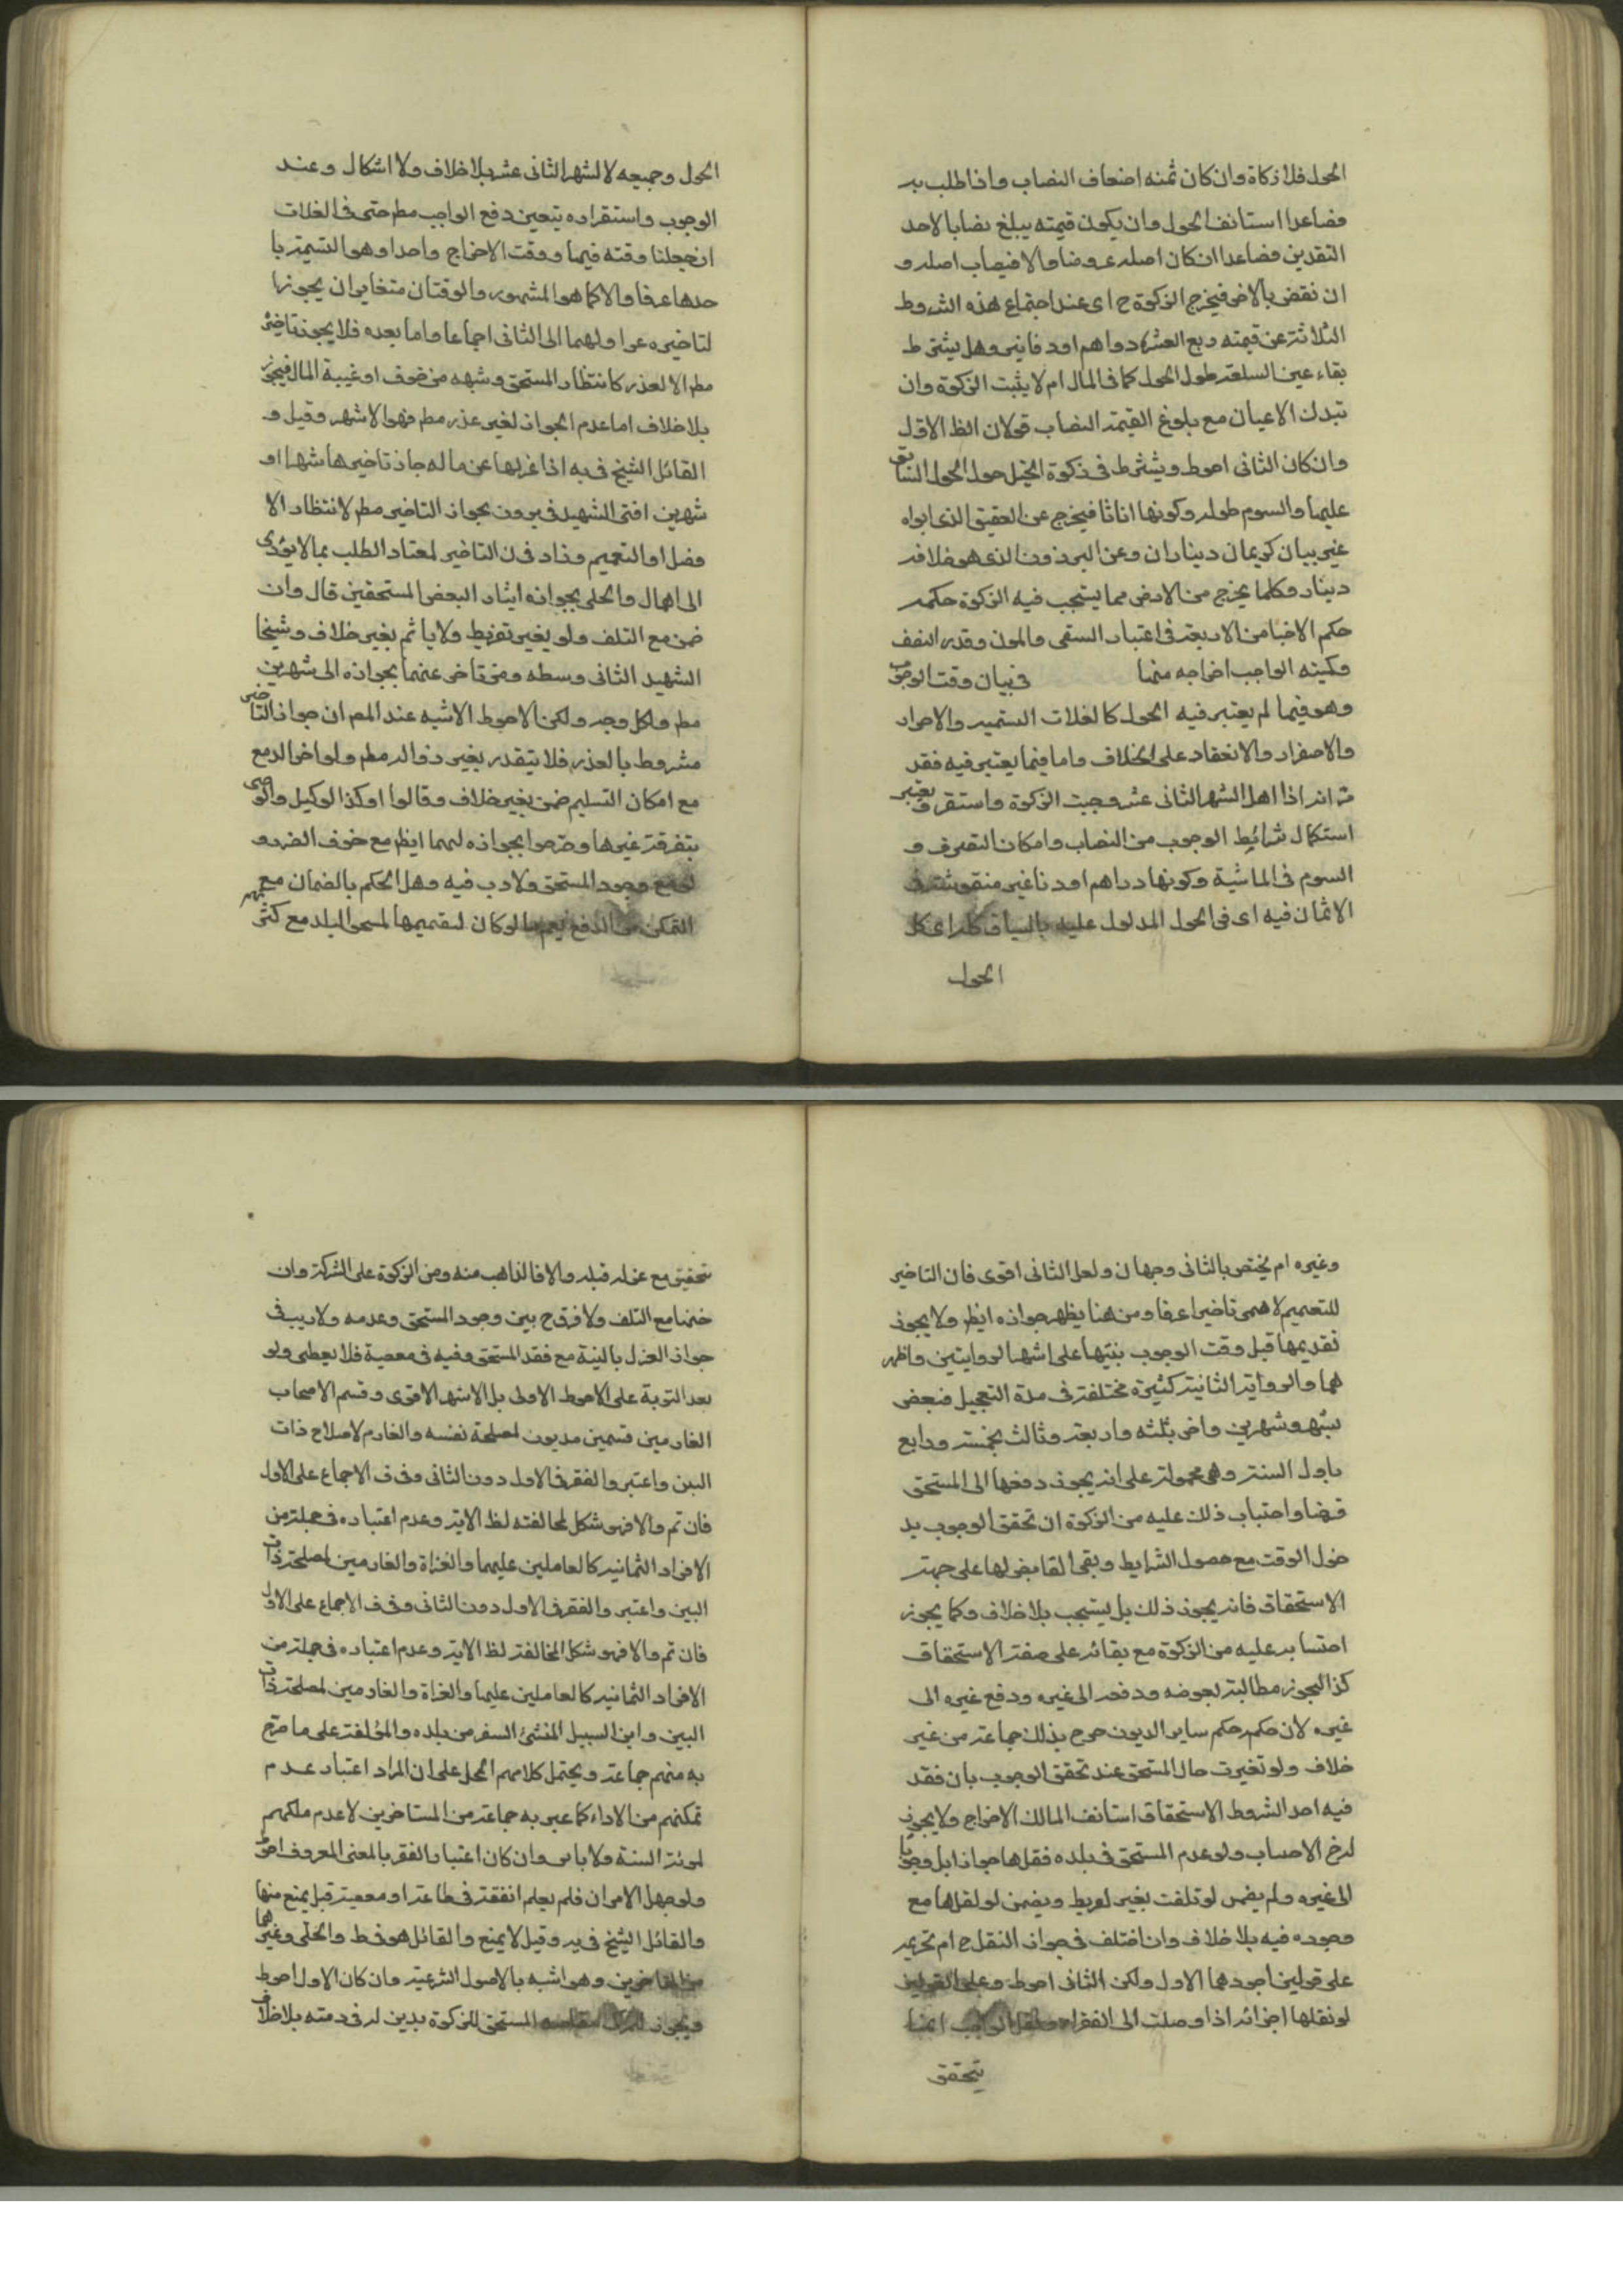 الحول فلا زكاة وان كان ثمنه اضعاف النصاب واذا طلب به
فصاعدا استانف الحول وان يكون قيمته يبلغ نصابا لاحد
النقدين فصاعدا ان كان اصله عروضا والا فنصاب اصله و
ان نقض بالاخر فيخرج الزكوة ح اى عند اجتماع هذه الشروط
الثلاثة عن قيمته ربع العشر دراهم او دنانير وهل يشترط
بقاء عين السلعة طول الحول كما فى المال ام لا يثبت الزكوة وان
تبدلت الاعيان مع بلوغ القيمة النصاب قولان اظ الاول
وان كان الثانى احوط ويشترط فى زكوة الخيل حول الحول السابق
عليها والسوم طوله وكونها اناثا فيخرج عن العتيق الذى ابواه
غير بيان كريمان ديناران وعن البرذون الذى هو خلافه
دينار وكلما يخرج من الارض مما يستحب فيه الزكوة حكمه
حكم الاجناس الاربعة فى اعتبار السقى والمؤن وقدر النصف
وكمية الواجب اخراجه منها فى بيان وقت الوجوب
وهو فيما لم يعتبر فيه الحول كالغلات التسمية والاحرار
والاصفرار والانعقاد على الخلاف واما فيما يعتبر فيه فقد
مر انه اذا اهل الشهر الثانى عشر وجبت الزكوة واستقر ويعتبر
استكمال شرائط الوجوب من النصاب وامكان التصرف و
السوم فى الماشية وكونها دراهم او دنانير منقوشة فى
الاثمان فيه اى فى الحول المدلول عليه بالسياق كله اى كل
الحول
الحول وجميعه لا لشهر الثانى عشر بلا خلاف ولا اشكال وعند
الوجوب واستقراره يتعين دفع الواجب مطر حتى فى الغلات
ان جعلنا وقته فيها ووقت الاخراج واحدا وهو التسمية با
حدها عرفا والا كما هو المشهور والوقتان متغايران يجوز تا
لتاخيره عن اولهما الى الثانى اجماعا واما بعده فلا يجوز تاخيره
مطر الا لعذر كانتظار المستحق وشبهه من خوف او غيبة المال فيجوز
بلا خلاف اما عدم الجواز لغير عذر مطر فهو الاشهر وقيل و
القائل الشيخ فى يه اذا عزلها عن ماله جاز تاخيرها شهرا او
شهرين افتى الشهيد فى بجواز التاخير مطر لانتظار الا
فضل او التعميم وزاد فى ن التاخير لمعتاد الطلب بما لا يؤدى
الى اهمال والحلى بجوازه ايثار البعض المستحقين قال وان
ضمن مع التلف ولو بغير تفريط ولا ياثم بغير خلاف وشيخنا
الشهيد الثانى وسبطه ومن تاخر عنهما بجوازه الى شهرين
مطر ولكل وجه ولكن الاحوط الاشبه عند المصر ان جواز التاخير
مشروط بالعذر فلا يتقدر بغير زواله مطر ولو اخر الدفع
مع امكان التسليم ضمن بغير خلاف وقالوا وكذا الوكيل والوصى
بتفرقة غيرها وصرحوا بجوازه لهما ايظ مع خوف الضرر و
لو مع وجود المستحق ولا ريب فيه وهل الحكم بالضمان مع
التمكن من الدفع يعم ما لو كان لتقسيمها لمستحقى البلد مع كثرتهم
وغيره ام يختص بالثانى وجهان ولعل الثانى اقوى فان التاخير
للتعميم لا يسمى تاخيرا عرفا ومن هنا يظهر جوازه ايظ ولا يجوز
تقديمها قبل وقت الوجوب بنيتها على اشهر الروايتين واظهر
هما والرواية الثانية كثيرة مختلفة فى مدة التعجيل فبعض
بشهر وشهرين واخر بثلثه واربعة وثالث بخمسة ورابع
باول السنة وهى محمولة على انه يجوز دفعها الى المستحق
قرضا واحتساب ذلك عليه من الزكوة ان تحقق الوجوب بد
خول الوقت مع حصول الشرايط وبقى القابض لها على جهة
الاستحقاق فانه يجوز ذلك بل يستحب بلا خلاف وكما يجوز
احتسابه عليه من الزكوة مع بقائه على صفة الاستحقاق
كذا يجوز مطالبته بعوضه ودفعه الى غيره ودفع غيره الى
غيره لان حكمه حكم ساير الديون صرح بذلك جماعة من غير
خلاف ولو تغيرت حال المستحق عند تحقق الوجوب بان فقد
فيه احد الشروط الاستحقاق استانف المالك الاخراج ولا يجوز
له ح الاحساب ولو عدم المستحق فى بلده فقلها جواز ابل وجوبا
الى غيره ولم يضمن لو تلفت بغير تفريط ويضمن لو نقلها مع
وجوده فيه بلا خلاف وان اختلف فى جواز النقل ح ام تحريمه
على قولين اجودهما الاول ولكن الثانى احوط وعلى القولين
لو نقلها اجزائه اذا وصلت الى الفقراء ايضا
يتحقق
يتحقق مع عزله قبله والا فالذاهب منه ومن الزكوة على الشركة وان
ضمنها مع التلف ولا فرق ح بين وجود المستحق وعدمه ولا ريب فى
جواز العزل بالنية مع فقد المستحق وفيه فى معصية فلا يعطى ولو
بعد التوبة على الاحوط الاولى بل الاشهر الاقوى وقسم الاصحاب
الغارمين قسمين مديون لمصلحة نفسه والغارم لاصلاح ذات
البين واعتبروا الفقر فى الاول دون الثانى وفى ف الاجماع على الاول
فان تم والا فهو مشكل لمخالفته لظ الاية وعدم اعتباره فى جملة من
الافراد الثمانية كالعاملين عليها والغزاة والغارمين لمصلحة ذات
البين واعتبروا الفقر فى الاول دون الثانى وفى ف الاجماع على الاول
فان تم والا فهو مشكل المخالفة لظ الاية وعدم اعتباره فى جملة من
الافراد الثمانية كالعاملين عليها والغزاة والغارمين لمصلحة ذات
البين وابن السبيل المنشئ السفر من بلده والمؤلفة على ما صرح
به منهم جماعة ويحتمل كلامهم الحمل على ان المراد اعتبار عدم
تمكنهم من الاداء كما عبر به جماعة من المتاخرين لا عدم ملكهم
لمؤنة السنة ولا باس وان كان اعتبار الفقر بالمعنى المعروف احوط
ولو جهل الامران فلم يعلم انفقة فى طاعة او معصية قيل يمنع منها
والقائل الشيخ فى يه وقيل لا يمنع والقائل هو فى ط والحلى وغيرهما
من المتاخرين وهو اشبه بالاصول الشرعية وان كان الاول احوط
ويجوز للمزكى مقاصه المستحق للزكوة بدين له فى ذمته بلا خلاف